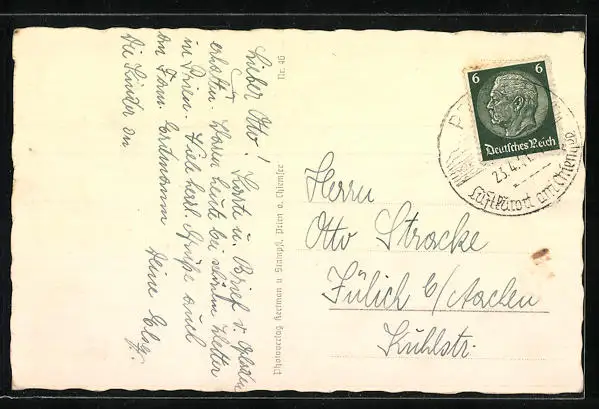 Lieber Otto! Karte u. Brief v.
erhalten. Waren heute bei schönem Wetter
in Prien. Viele herzl. Grüße auch
an Fam. Erdmann Deine
Die Kinder
Nr. 46
Photoverlag Hertman u. Stumpf, Prien a. Chiemsee
6 6
Deutsches Reich
P
23.4.41
Luftkurort am Chiemsee
Herrn
Otto Stracke
Jülich b/Aachen
Kühlstr.